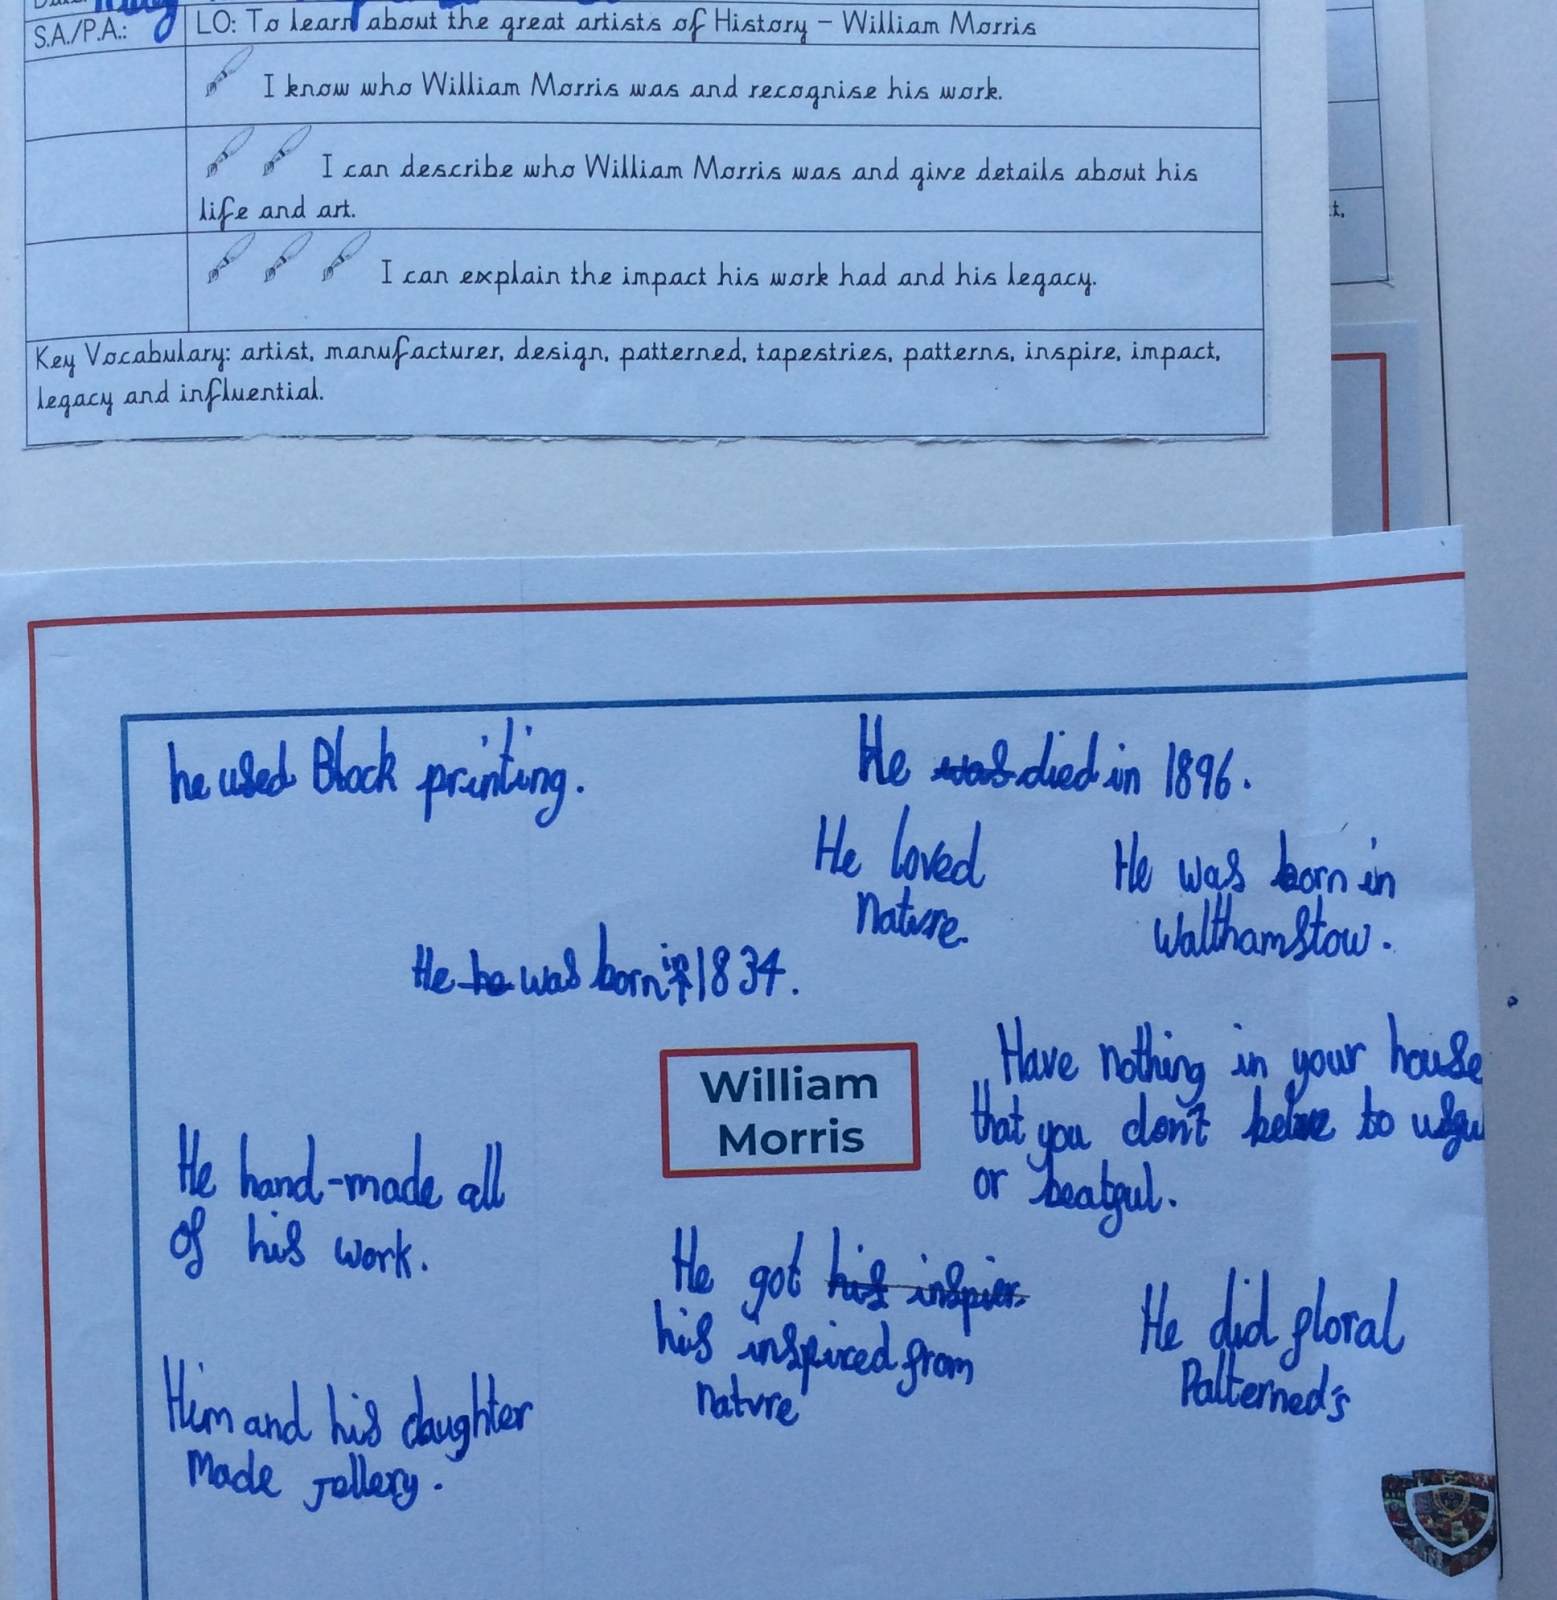 S.A./P.A.:
LO: To learn about the great artists of History – William Morris
I know who William Morris was and recognise his work.
I can describe who William Morris was and give details about his
life and art.
I can explain the impact his work had and his legacy.
Key Vocabulary: artist, manufacturer, design, patterned, tapestries, patterns, inspire, impact,
legacy and influential.
t,
he used Block printing.
He was died in 1896.
He loved
nature.
He was born in
Walthamstow.
He he was born in 1834.
William
Morris
"Have nothing in your house
that you don't to
or beatgul.
He hand-made all
of his work.
He got his inspier
his inspired from
nature
He did floral
Patterned's
Him and his daughter
made jellery.